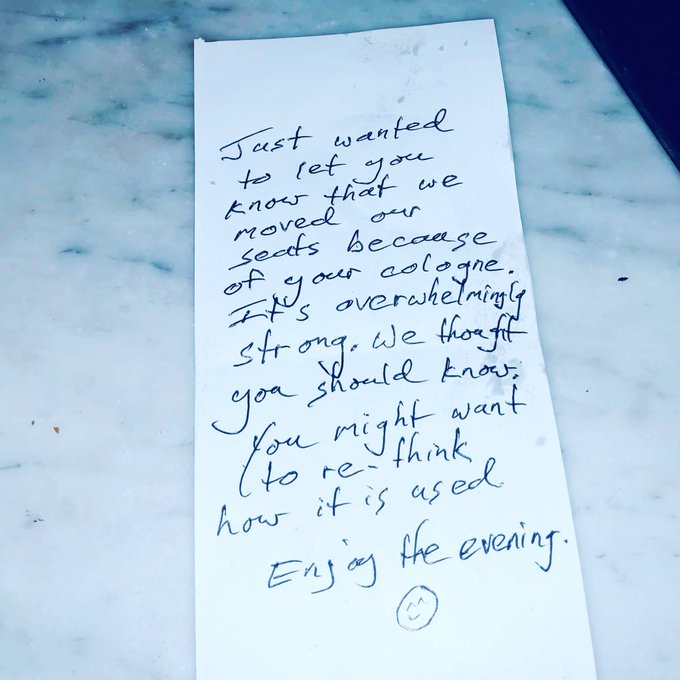 Just wanted
to let you
know that we
moved our
seats because
of your cologne.
It's overwhelmingly
strong. We thought
you should know.
You might want
to re-think
how it is used
Enjoy the evening.